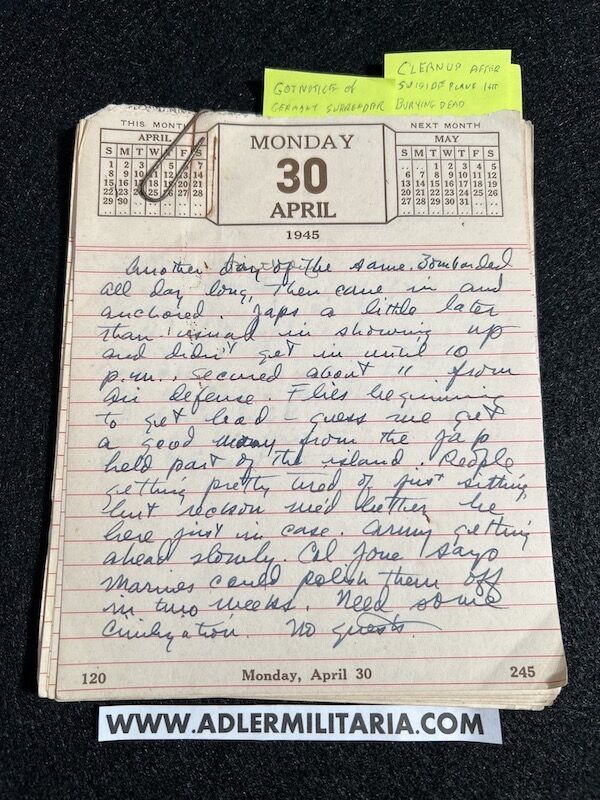 GOT NOTICE of
GERMANY SURRENDER
CLEANUP AFTER
SUICIDE PLANE HIT
BURYING DEAD
THIS MONTH
APRIL
S M T W T F S
1 2 3 4 5 6 7
8 9 10 11 12 13 14
15 16 17 18 19 20 21
22 23 24 25 26 27 28
29 30
MONDAY
30
APRIL
1945
NEXT MONTH
MAY
S M T W T F S
1 2 3 4 5
6 7 8 9 10 11 12
13 14 15 16 17 18 19
20 21 22 23 24 25 26
27 28 29 30 31
Another day of the same. Bombarded
all day long, then came in and
anchored. Japs a little later
than usual in showing up
and didn't get in until 10
p.m.. Secured about 11 from
air defense. Flies beginning
to get bad - guess we get
a good many from the jap
held part of the island. People
getting pretty tired of just sitting
but reckon we'd better be
here just in case. Army getting
ahead slowly. Col says
Marines could polish them off
in two weeks. Need some
No guests
120
Monday, April 30
245
WWW.ADLERMILITARIA.COM